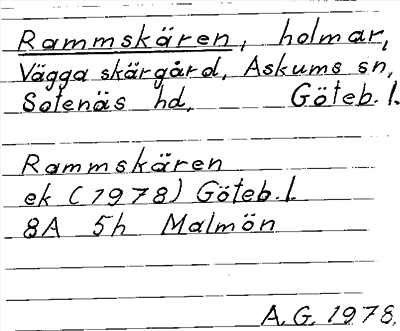 Rammskären, holmar,
Vägga skärgård, Askums sn,
Sotenäs hd, Göteb.l.
Rammskären
ek (1978) Göteb.l.
8A 5h Malmön
A.G. 1978.